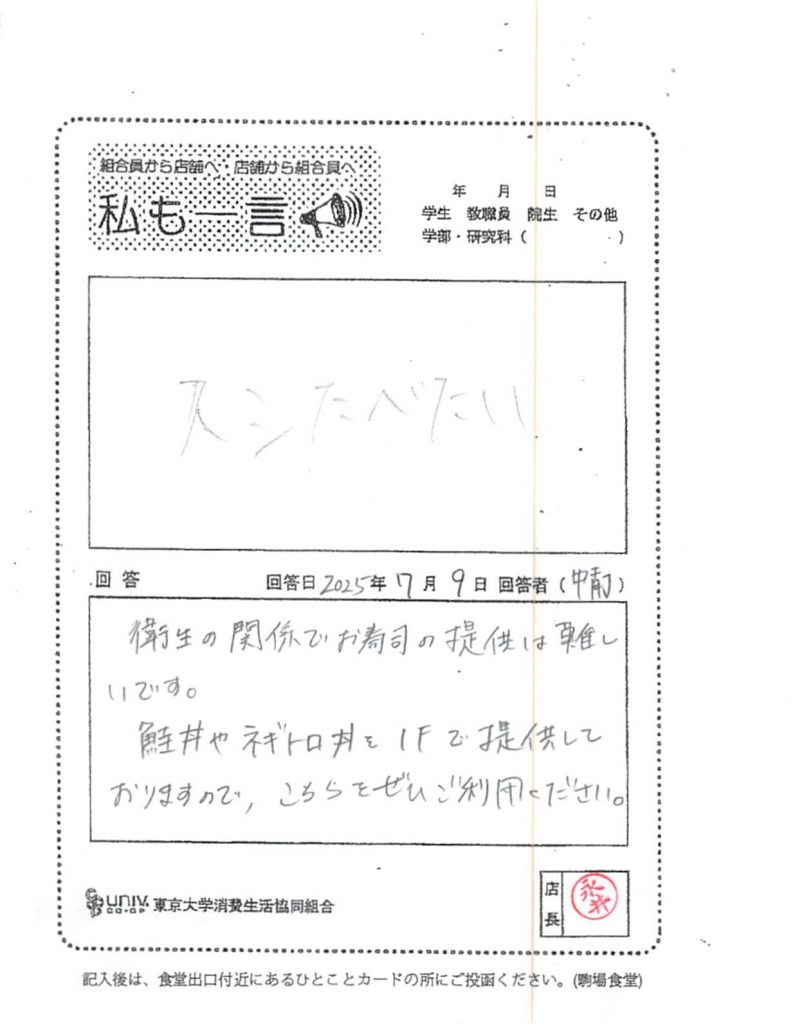 組合員から店舗へ・店舗から組合員へ
私も一言
年 月 日
学生 教職員 院生 その他
学部・研究科( )
スシたべたい
回答 回答日 2025年 7月 9日 回答者( )
衛生の関係でお寿司の提供は難し
いです。
鮭丼やネギトロ丼を1Fで提供して
おりますので、こちらをぜひご利用ください。
UNIV. CO-OP 東京大学消費生活協同組合
店長
記入後は、食堂出口付近にあるひとことカードの所にご投函ください。(駒場食堂)